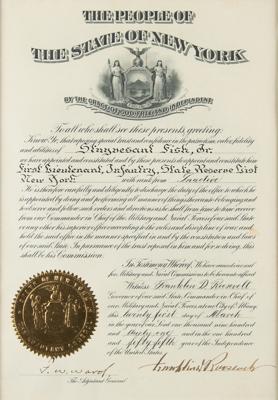 THE PEOPLE OF
THE STATE OF NEW YORK
BY THE GRACE OF GOD FREE AND INDEPENDENT
To all who shall see these presents, greeting:
Know Ye, that reposing special trust and confidence in the patriotism, valor, fidelity
and abilities of Stuyvesant Fish, Jr.
we have appointed and constituted and by these presents do appoint and constitute him
First Lieutenant, Infantry, State Reserve List
New York with rank from Inactive
He is therefore carefully and diligently to discharge the duty of the office to which he
is appointed by doing and performing all manner of things thereunto belonging and
to observe and follow such orders and directions as he shall from time to time receive
from our Commander in Chief of the Military and Naval Forces of our said State
or any other his superior officer according to the rules and discipline of war; and
hold the said office in the manner specified in and by the constitution and laws
of our said State. In pursuance of the trust reposed in him and for so doing, this
shall be his Commission.
In Testimony Whereof, We have caused our seal
for Military and Naval Commissions to be hereunto affixed
Witness Franklin D Roosevelt
Governor of our said State Commander in Chief of
our Military and Naval Forces at our City of Albany,
twenty first day of March
in the year of our Lord one thousand nine hundred
and thirty one and in the one hundred
and fifty fifth year of the Independence
of the United States.
Franklin D Roosevelt
The Adjutant General